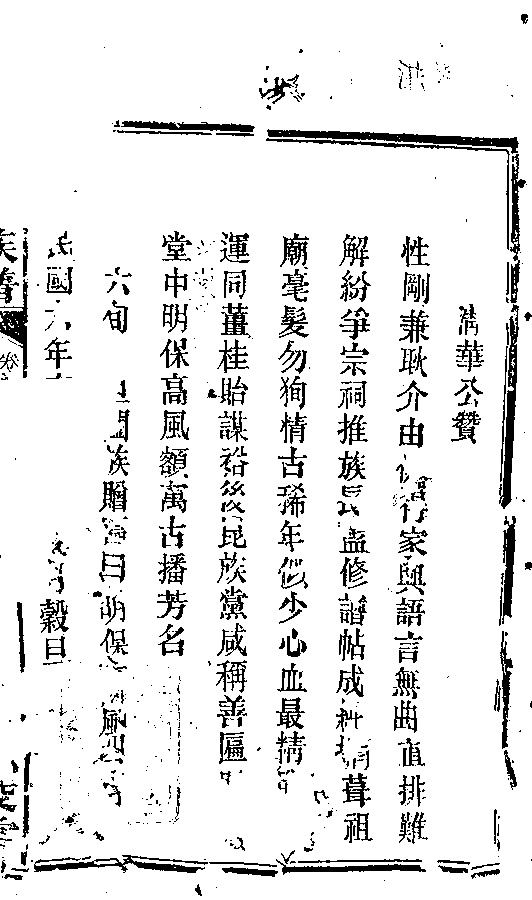 清華公贊
性剛兼耿介由 行家與語言無曲直排難
解紛爭宗祠推族長 盂修譜帖成 葺祖
廟毫髮勿狥情古稀年似少心血最精
運同薑桂貽謀裕後昆族黨咸稱善匾
堂中明保高風額萬古播芳名
六旬 闔族贈匾曰明保 風四
民國 年 穀旦
族譜 卷